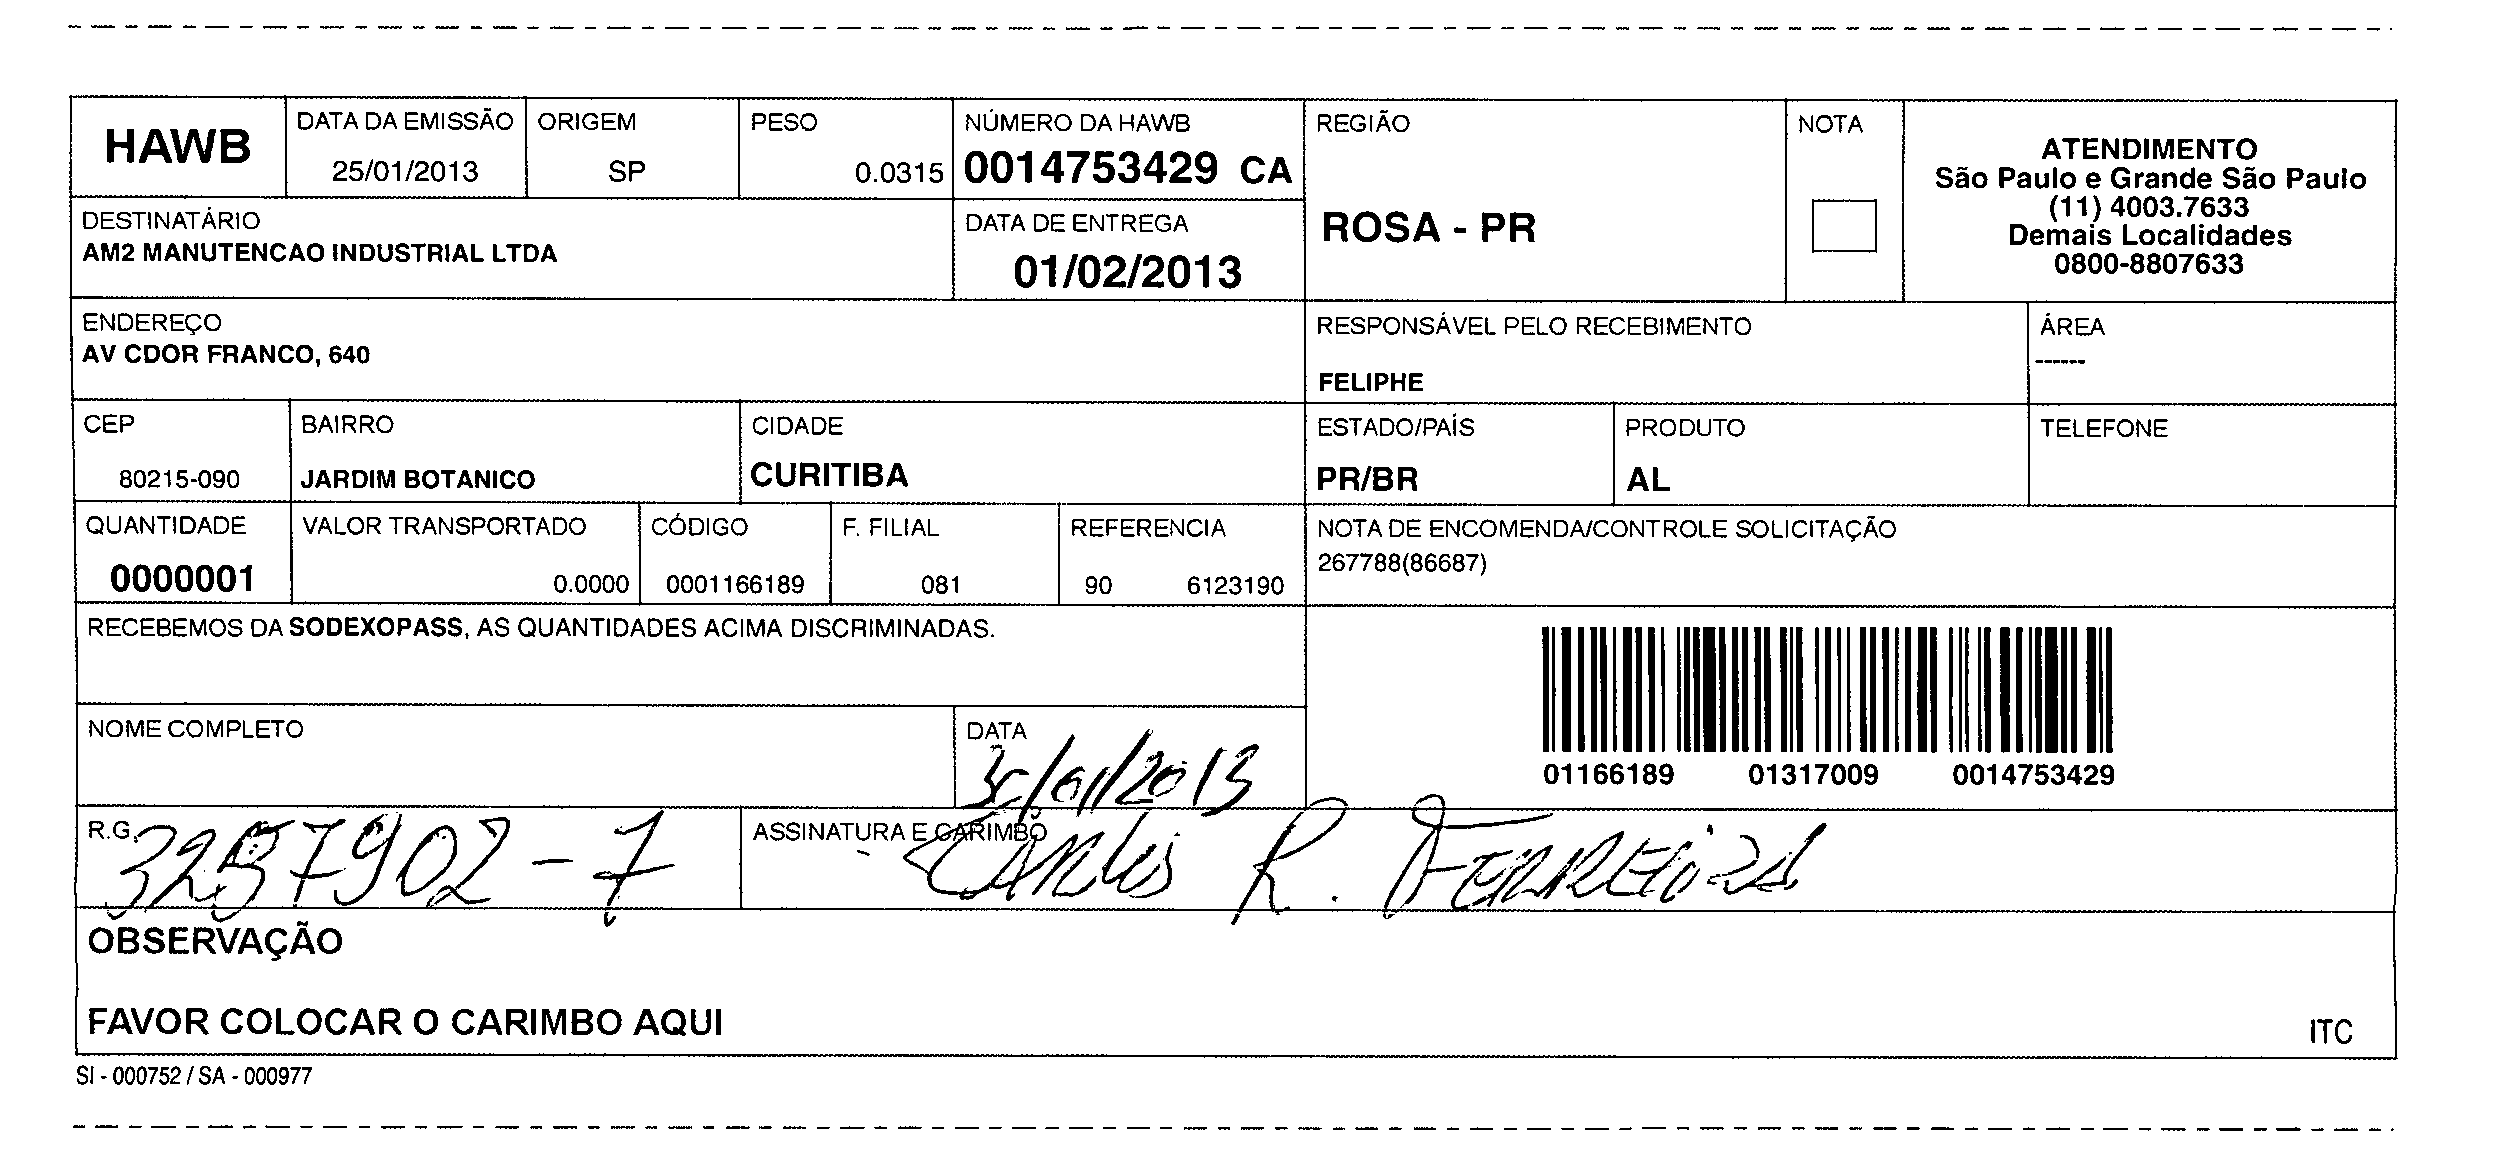 HAWB
DATA DA EMISSÃO
25/01/2013
ORIGEM
SP
PESO
0.0315
NÚMERO DA HAWB
0014753429 CA
REGIÃO
ROSA - PR
NOTA
ATENDIMENTO
São Paulo e Grande São Paulo
(11) 4003.7633
Demais Localidades
0800-8807633
DESTINATÁRIO
AM2 MANUTENCAO INDUSTRIAL LTDA
DATA DE ENTREGA
01/02/2013
ENDEREÇO
AV CDOR FRANCO, 640
RESPONSÁVEL PELO RECEBIMENTO
FELIPHE
ÁREA
------
CEP
80215-090
BAIRRO
JARDIM BOTANICO
CIDADE
CURITIBA
ESTADO/PAÍS
PR/BR
PRODUTO
AL
TELEFONE
QUANTIDADE
0000001
VALOR TRANSPORTADO
0.0000
CÓDIGO
0001166189
F. FILIAL
081
REFERENCIA
90 6123190
NOTA DE ENCOMENDA/CONTROLE SOLICITAÇÃO
267788(86687)
RECEBEMOS DA SODEXOPASS, AS QUANTIDADES ACIMA DISCRIMINADAS.
01166189 01317009 0014753429
NOME COMPLETO
DATA
30/01/2013
R.G.
ASSINATURA E CARIMBO
Carlos R. Ferreira
OBSERVAÇÃO
FAVOR COLOCAR O CARIMBO AQUI
ITC
SI - 000752 / SA - 000977